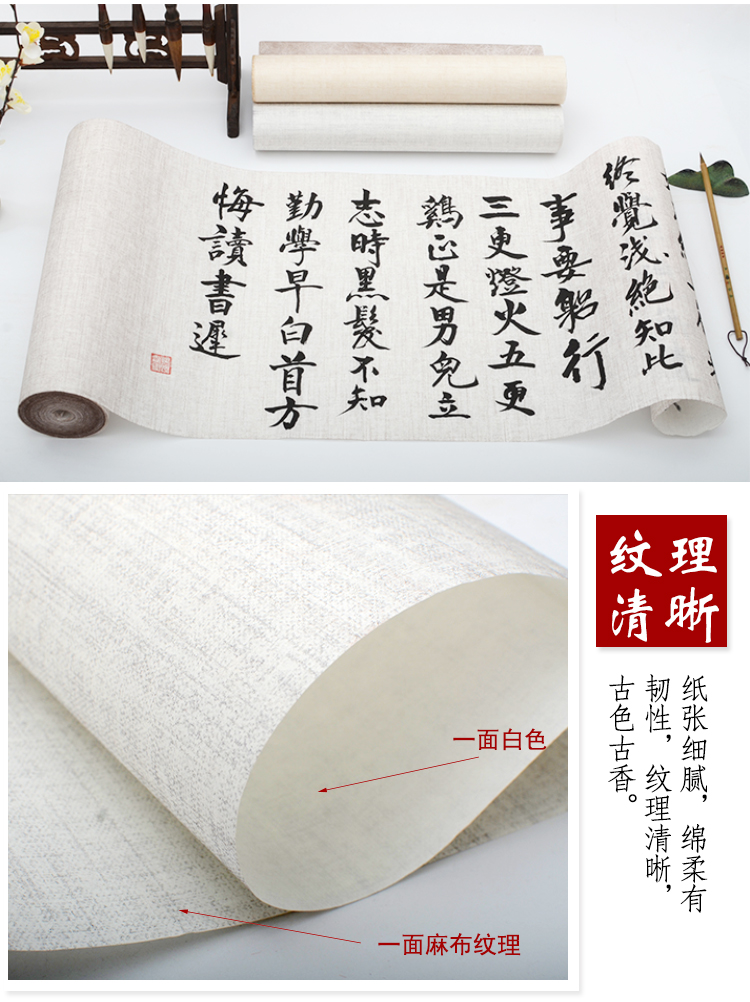 终覺浅絶知此
事要躬行
三更燈火五更
鷄正是男兒立
志時黑髮不知
勤學早白首方
悔讀書遲
纹理
清晰
纸张细腻，绵柔有
韧性，纹理清晰，
古色古香。
一面白色
一面麻布纹理